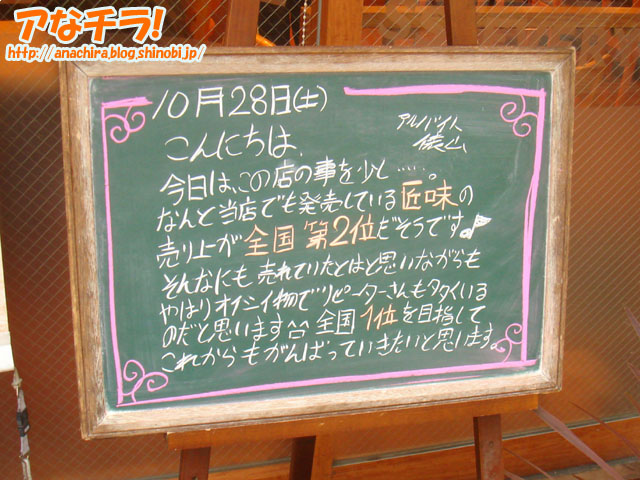 アなチラ!
http://anachira.blog.shinobi.jp/
10月28日(土)
アルバイト
こんにちは、
今日は、この店の事を少と……。
なんと当店でも発売している匠味の
売り上が全国第2位だそうです♪
そんなにも売れていたとはと思いながらも
やはりオイシイ物でリピーターさんも多くいる
のだと思います^^全国1位を目指して
これからもがんばっていきたいと思います。